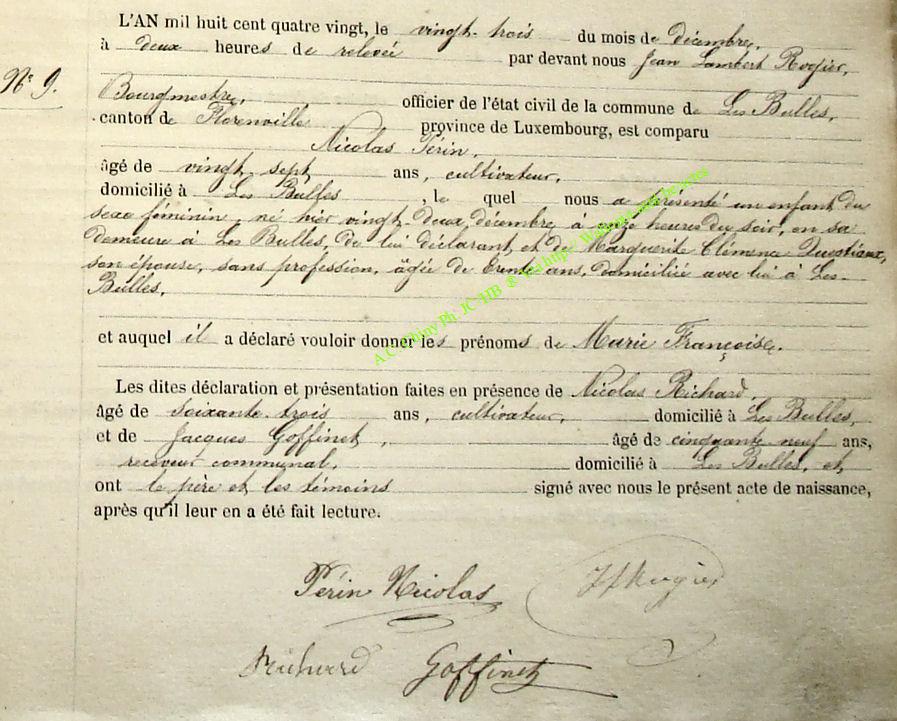 L'AN mil huit cent quatre vingt, le vingt-trois du mois de décembre,
à deux heures de relevée par devant nous Jean Lambert Rogier,
N° 9.
Bourgmestre, officier de l'état civil de la commune de Les Bulles,
canton de Florenville province de Luxembourg, est comparu
Nicolas Périn,
âgé de vingt sept ans, cultivateur,
domicilié à Les Bulles, le quel nous a présenté un enfant du
sexe féminin, né hier vingt-deux décembre à onze heures du soir, en sa
demeure à Les Bulles, de lui déclarant, et de Marguerite Clémence
son épouse, sans profession, âgée de trente ans, domicilié avec lui à Les
Bulles,
et auquel il a déclaré vouloir donner les prénoms de Marie Françoise.
Les dites déclaration et présentation faites en présence de Nicolas Richard,
âgé de soixante-trois ans, cultivateur, domicilié à Les Bulles,
et de Jacques Goffinet, âgé de cinquante neuf ans,
receveur communal, domicilié à Les Bulles, et
ont le père et les témoins signé avec nous le présent acte de naissance,
après qu'il leur en a été fait lecture.
Périn Nicolas JLRogier
Richard Goffinet